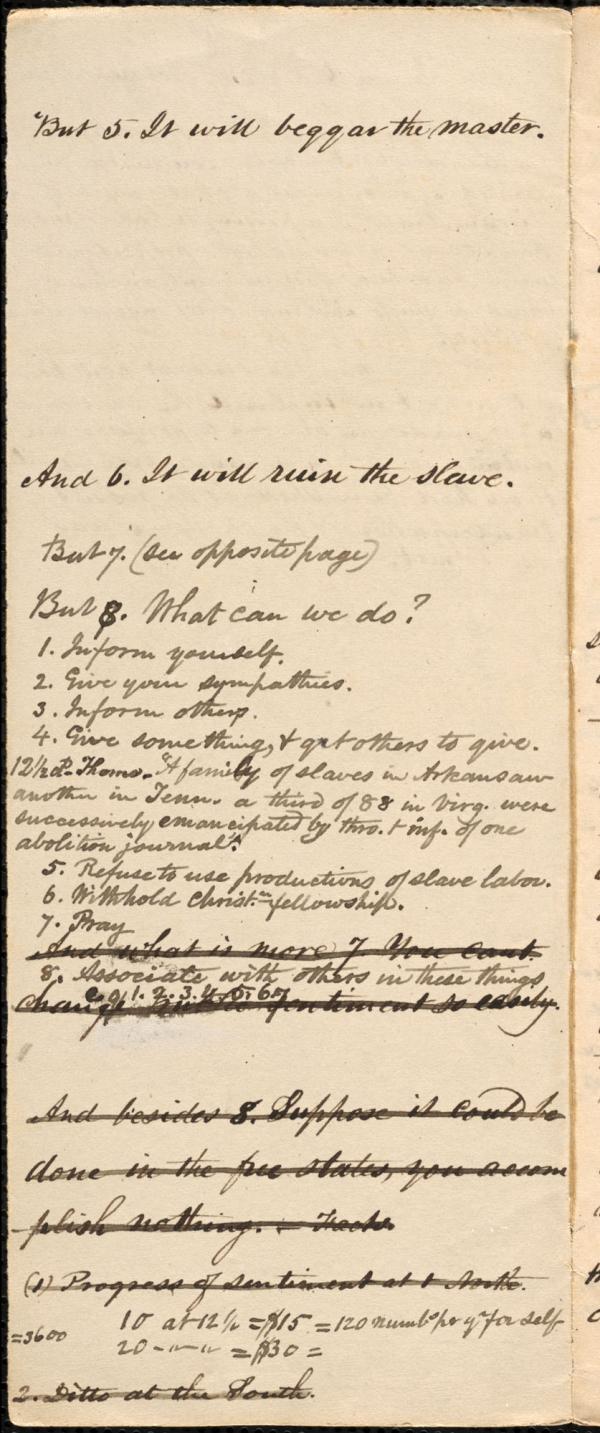 But 5. It will beggar the master.
And 6. It will ruin the slave.
But 7. (see opposite page)
But 8. What can we do?
1. Inform yourself.
2. Give your sympathies.
3. Inform others.
4. Give something, & get others to give.
12½ Thoms. "A family of slaves in Arkansaw
another in Tenn. a third of 88 in Virg. were
successively emancipated by thro. & inf. of one
abolition journal".
5. Refuse to use productions of slave labor.
6. Withhold Christn. fellowship.
7. Pray
And what is more 7 You cant
8. Associate with others in these things
e.g. 1. 2. 3. 4. 5. 6. 7
change public sentiment so easily.
And besides 8. Suppose it could be
done in the free states, you accom
plish nothing. – Facts
(1) Progress of sentiment at t North.
10 at 12½ = $15 = 120 numbs per yr for self
=3600 20 -"-" = $30 =
2. Ditto at the South.